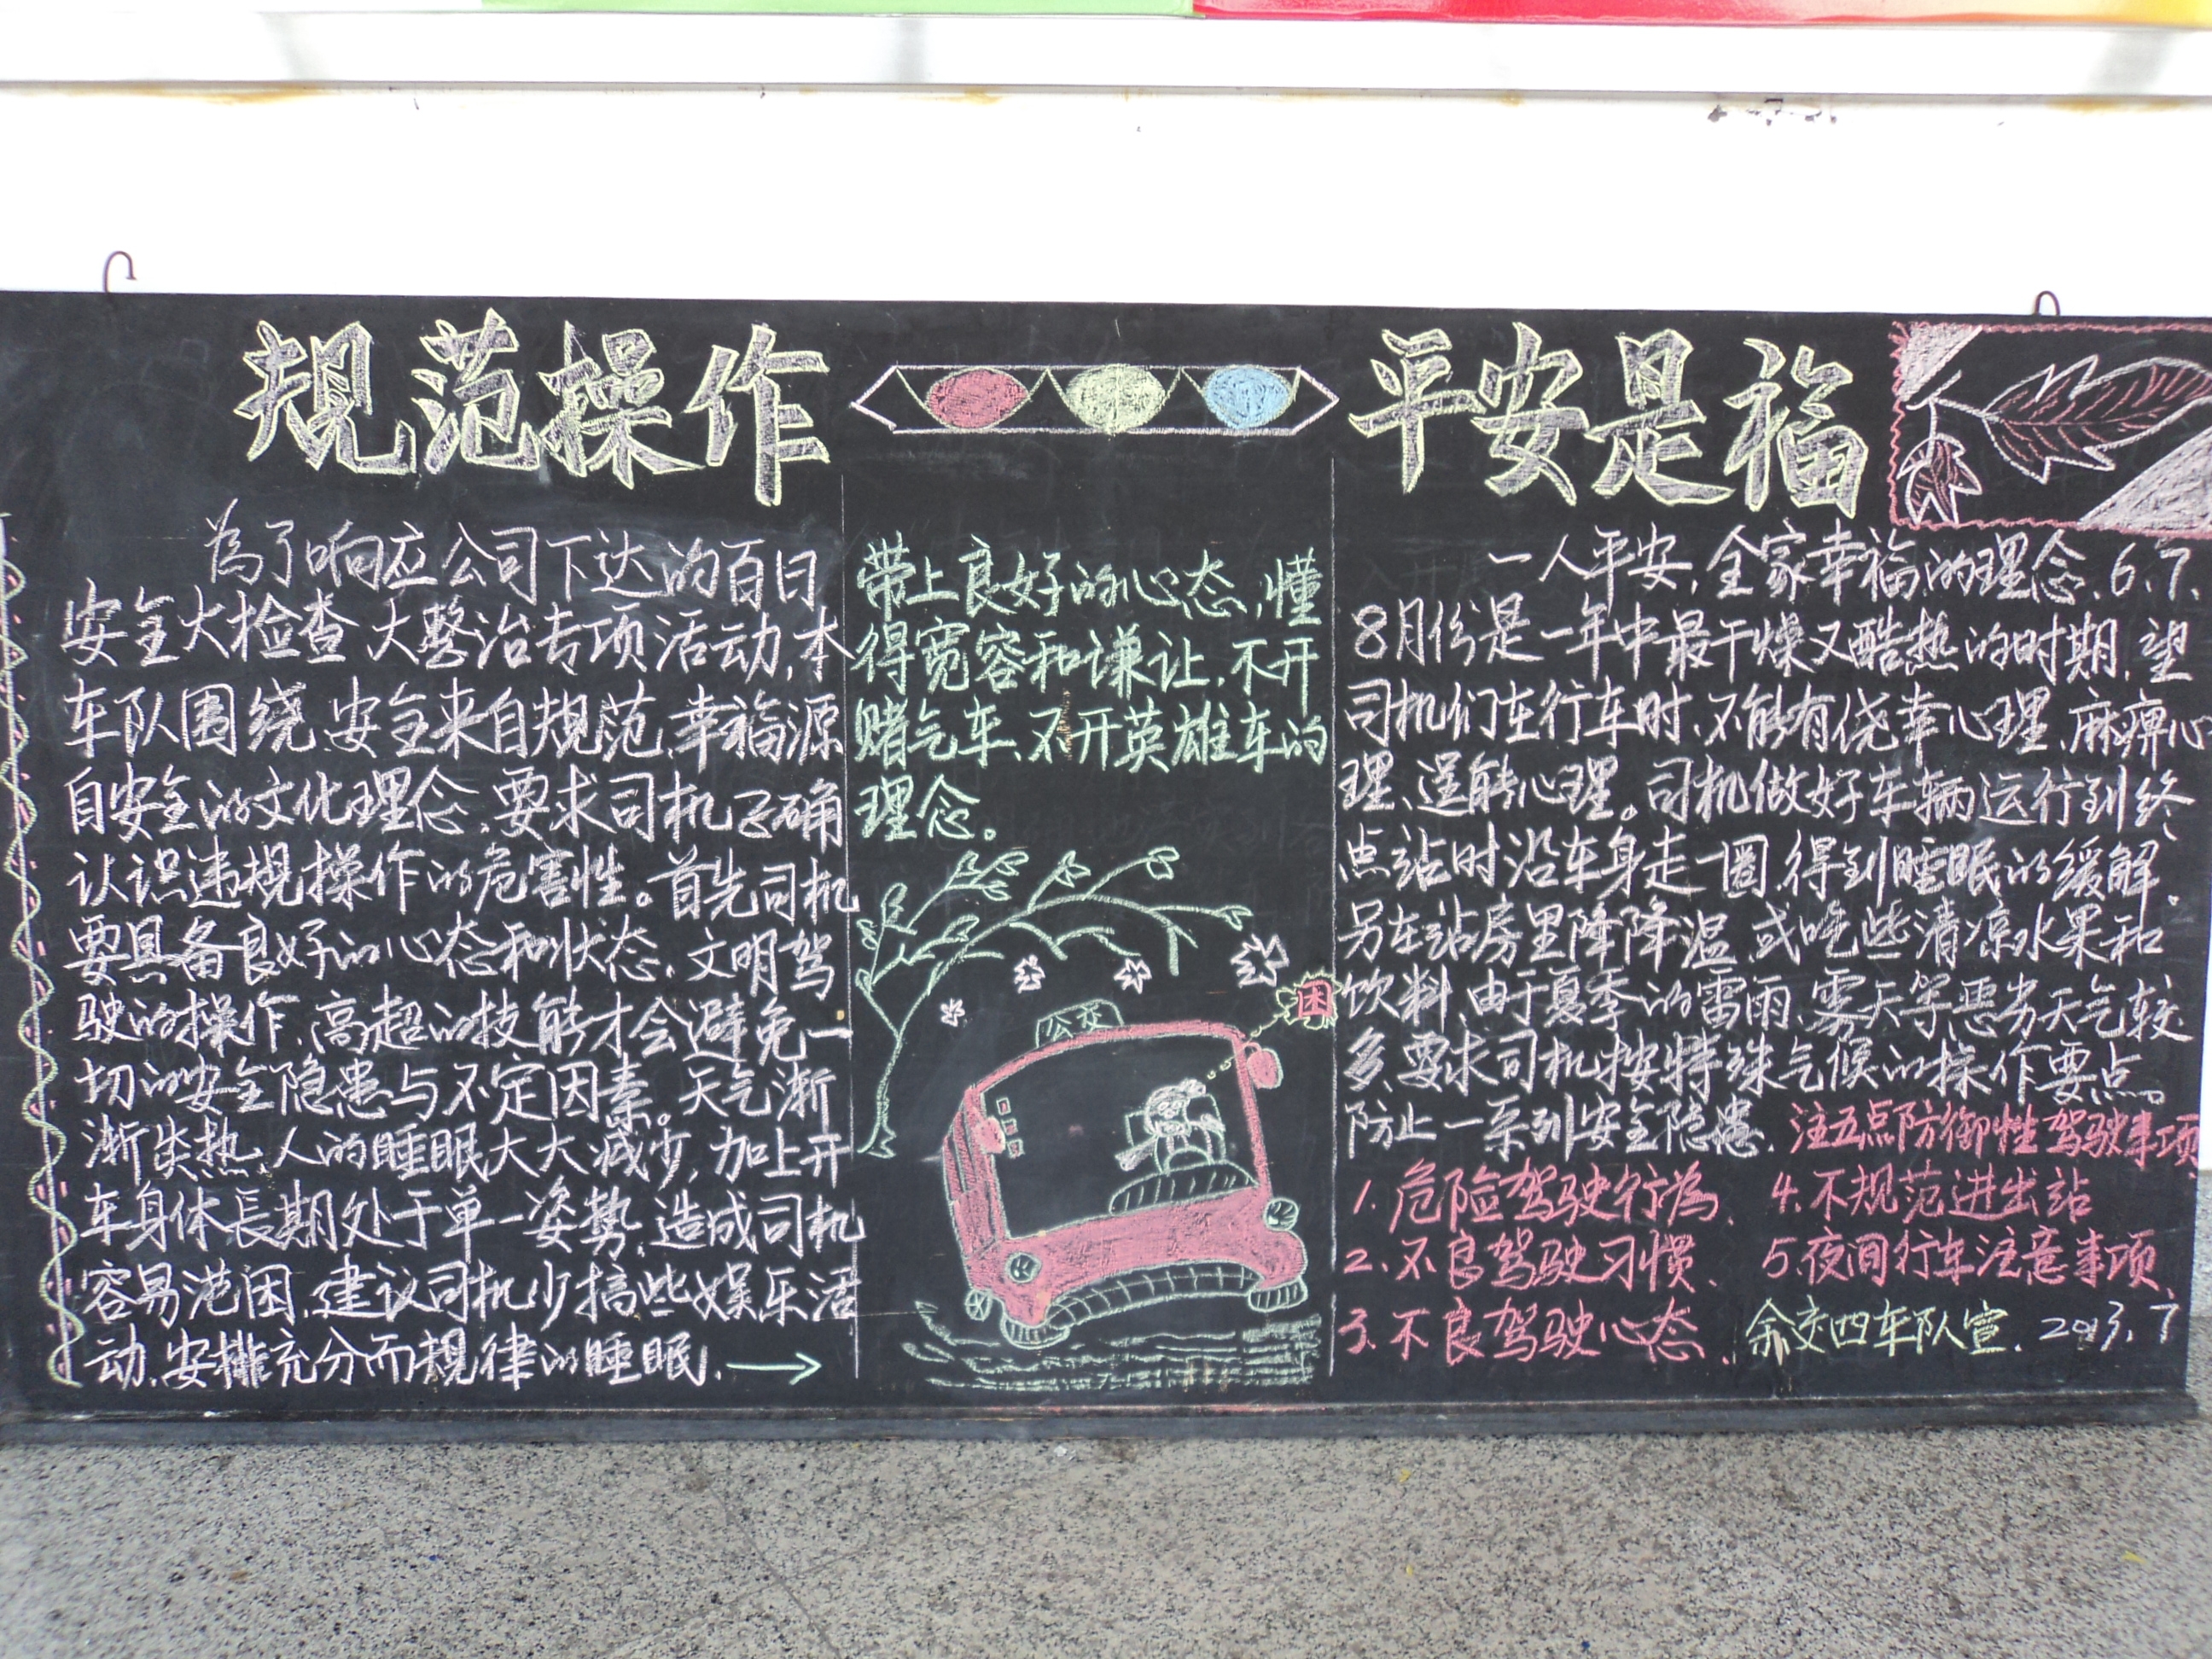 规范操作
为了响应公司下达的百日
安全大检查大整治专项活动,本
车队围绕、安全来自规范,幸福源
自安全的文化理念,要求司机正确
认识违规操作的危害性。首先司机
要具备良好的心态和状态,文明驾
驶的操作,高超的技能才会避免一
切的安全隐患与不定因素。天气渐
渐炎热、人的睡眠大大减少,加上开
车身体長期处于单一姿势,造成司机
容易泛困,建议司机少搞些娱乐活
动,安排充分而规律的睡眠. →
带上良好的心态,懂
得宽容和谦让,不开
赌气车、不开英雄车的
理念。
公交
困
平安是福
一人平安,全家幸福的理念、6、7、
8月份是一年中最干燥又酷热的时期,望
司机们在行车时,不能有侥幸心理、麻痹心
理、逞能心理。司机做好车辆运行到终
点站时沿车身走一圈,得到睡眠的缓解.
另在站房里降降温,或吃些清凉水果和
饮料,由于夏季的雷雨、雾天等恶劣天气较
多,要求司机按特殊气候的操作要点。
防止一系列安全隐患. 注五点防御性驾驶事项
1.危险驾驶行為、 4.不规范进出站
2.不良驾驶习惯、 5.夜间行车注意事项、
3.不良驾驶心态、 余交四车队宣. 2013.7